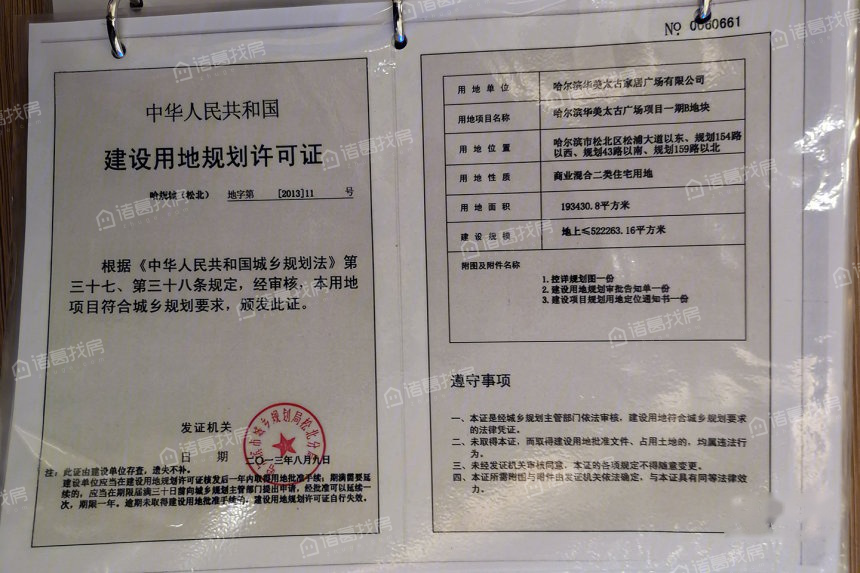 中华人民共和国
建设用地规划许可证
哈规城（松北） 地字第 [2013]11 号
根据《中华人民共和国城乡规划法》第
三十七、第三十八条规定，经审核，本用地
项目符合城乡规划要求，颁发此证。
发证机关
日 期 二〇一三年八月九日
市城乡规划局松北分局
注：此证由建设单位存查，遗失不补。
建设单位应当在建设用地规划许可证核发后一年内取得用地批准手续；期满需要延
续的，应当在期限届满三十日前向城乡规划主管部门提出申请，经批准可以延续一
次，期限一年。逾期未取得建设用地批准手续的，建设用地规划许可证自行失效。
No 0060661
用地单位 哈尔滨华美太古家居广场有限公司
用地项目名称 哈尔滨华美太古广场项目一期B地块
用地位置 哈尔滨市松北区松浦大道以东、规划154路
以西、规划43路以南、规划159路以北
用地性质 商业混合二类住宅用地
用地面积 193430.8平方米
建设规模 地上≤522263.16平方米
附图及附件名称
1. 控详规划图一份
2. 建设用地规划审批告知单一份
3. 建设项目规划用地定位通知书一份
遵守事项
一、本证是经城乡规划主管部门依法审核，建设用地符合城乡规划要求
的法律凭证。
二、未取得本证，而取得建设用地批准文件、占用土地的，均属违法行
为。
三、未经发证机关审核同意，本证的各项规定不得随意变更。
四、本证所需附图与附件由发证机关依法确定，与本证具有同等法律效
力。
诸葛找房